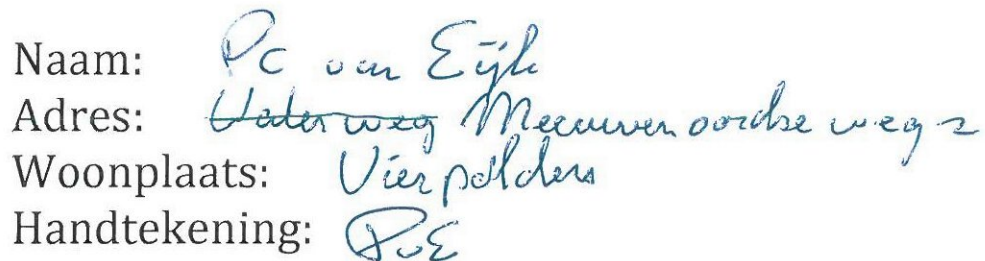 Naam: PC van Eijk
Adres: Waterweg Meeuwenoordseweg 2
Woonplaats: Vierpolders
Handtekening: PvE